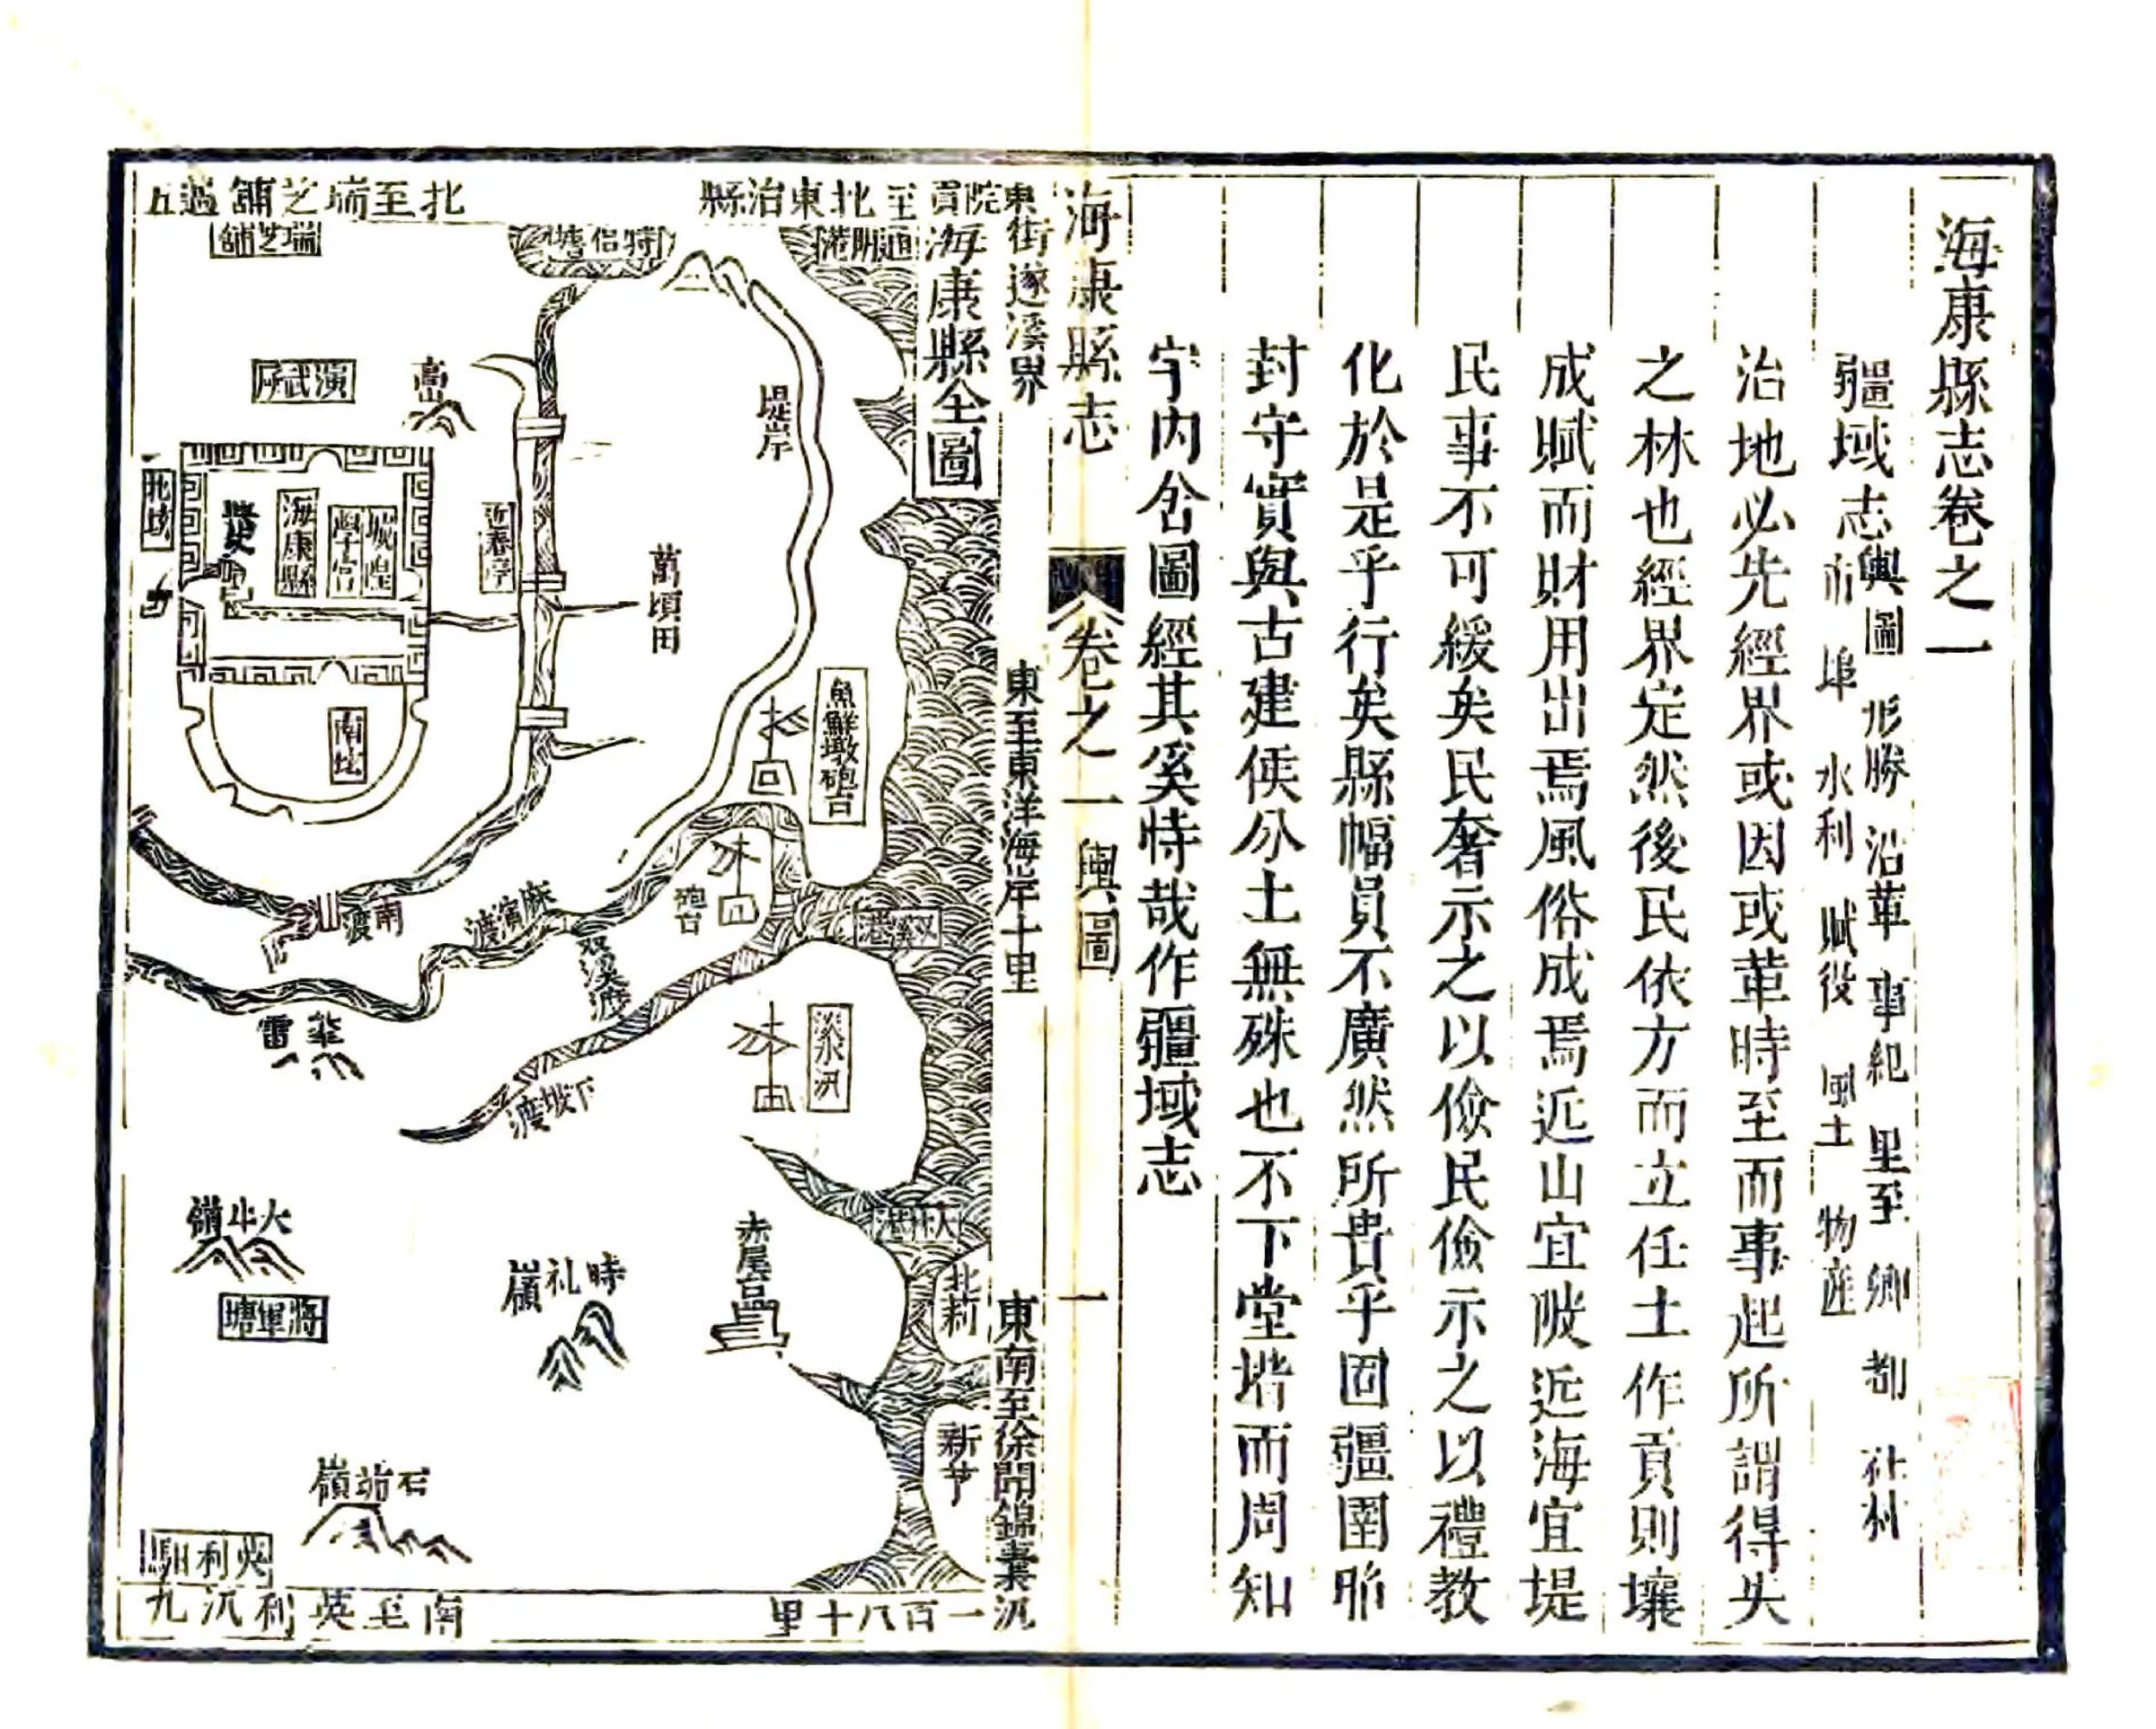 海康縣志卷之一
疆域志
輿圖 形勝 沿革 事紀 里至 鄉都 社村
市埠 水利 賦役 風土 物產
治地必先經界或因或革時至而事起所謂得失
之林也經界定然後民依方而立任土作貢則壤
成賦而財用出焉風俗成焉近山宜陂近海宜堤
民事不可緩矣民奢示之以儉民儉示之以禮教
化於是乎行矣縣幅員不廣然所貴乎固疆圉
封守實與古建侯分土無殊也不下堂堦而周知
宇內呇圖經其奚恃哉作疆域志
海康縣志
卷之一
輿圖
一
東街遂溪界
東至東洋海岸十里
東南至徐聞錦囊汛一百八十里
海康縣全圖
縣治東北至
院貢
北至瑞芝舖過五
通明港
特侶塘
瑞芝舖
堤岸
高山
演武亭
北坊
海康縣
學宮
城隍
近春亭
萬頃田
南坊
魚鮮墩砲台
砲台
双溪港
南渡
麻演渡
双溪渡
淡水汛
下坡渡
擎雷
大牛嶺
將軍塘
時礼嶺
赤尾宮
大林港
北莉
新艼
石峁嶺
英利馹
南至英利汛九